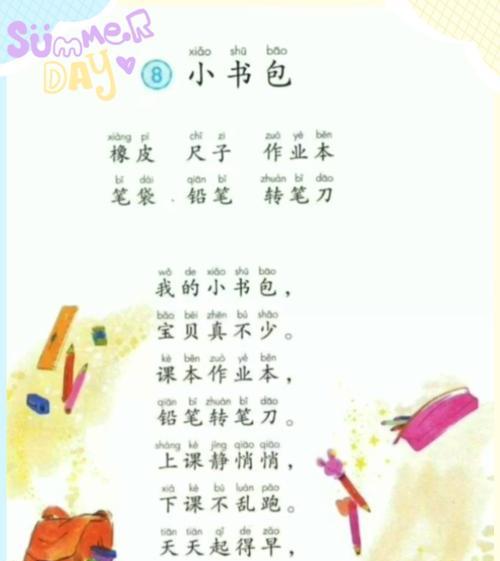 SUMMER
DAY
xiǎo shū bāo
8 小书包
xiàng pí chǐ zi zuò yè běn
橡皮 尺子 作业本
bǐ dài qiān bǐ zhuàn bǐ dāo
笔袋 铅笔 转笔刀
wǒ de xiǎo shū bāo
我的小书包，
bǎo bèi zhēn bù shǎo
宝贝真不少。
kè běn zuò yè běn
课本作业本，
qiān bǐ zhuàn bǐ dāo
铅笔转笔刀。
shàng kè jìng qiāo qiāo
上课静悄悄，
xià kè bú luàn pǎo
下课不乱跑。
tiān tiān qǐ de zǎo
天天起得早，